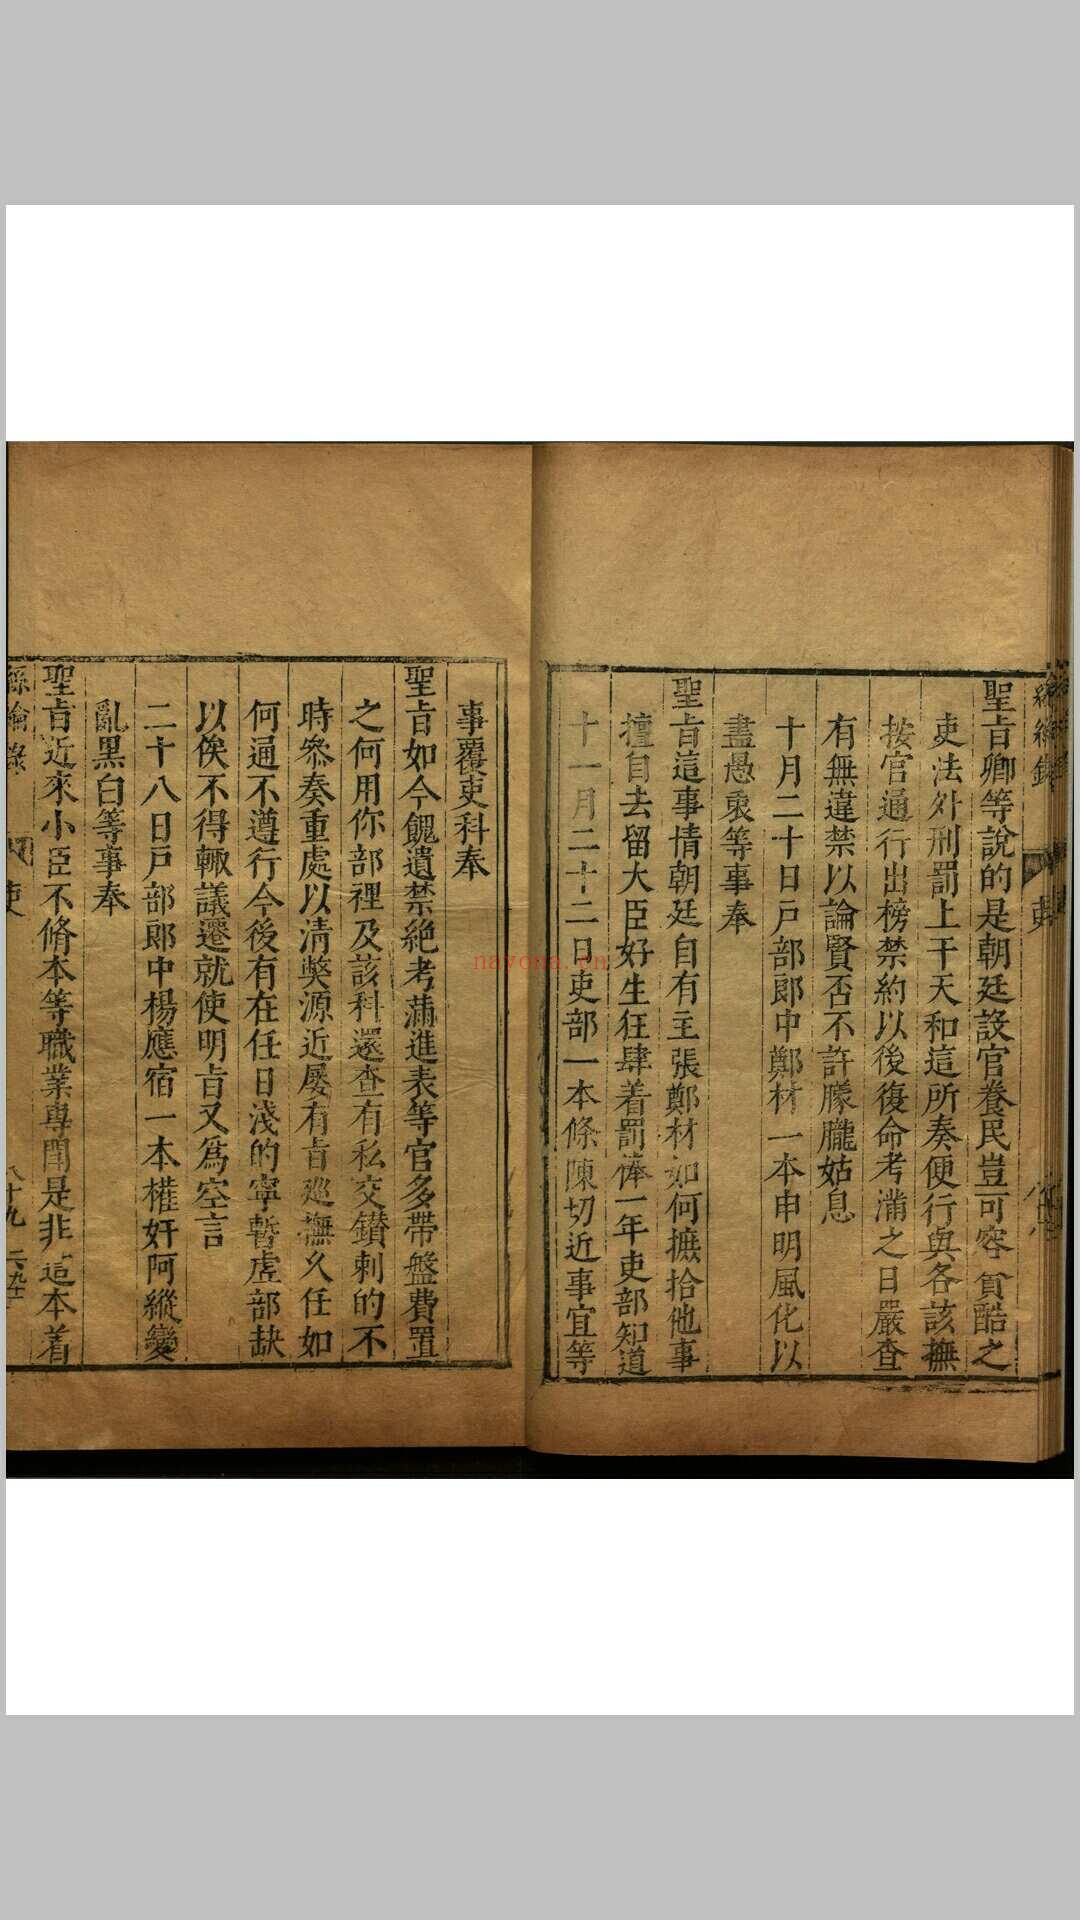 聖旨卿等說的是朝廷設官養民豈可容貪酷之
吏法外刑罰上干天和這所奏便行與各該撫
按官通行出榜禁約以後復命考滿之日嚴查
有無違禁以論賢否不許朦朧姑息
十月二十日戶部郎中鄭材一本申明風化以
盡愚衷等事奉
聖旨這事情朝廷自有主張鄭材如何摭拾他事
擅自去留大臣好生狂肆着罰俸一年吏部知道
十一月二十二日吏部一本條陳切近事宜等
事覆吏科奉
聖旨如今餽遺禁絕考滿進表等官多帶盤費置
之何用你部裡及該科還查有私交鑚刺的不
時叅奏重處以清獘源近屡有旨廵撫乆任如
何通不遵行今後有在任日淺的寧暫虗部缺
以俟不得輙議遷就使明旨又為空言
二十八日戶部郎中楊應宿一本權奸阿縱變
亂黑白等事奉
聖旨近來小臣不脩本等職業專閙是非這本着
絲綸錄
吏
八十九
nayona.cn